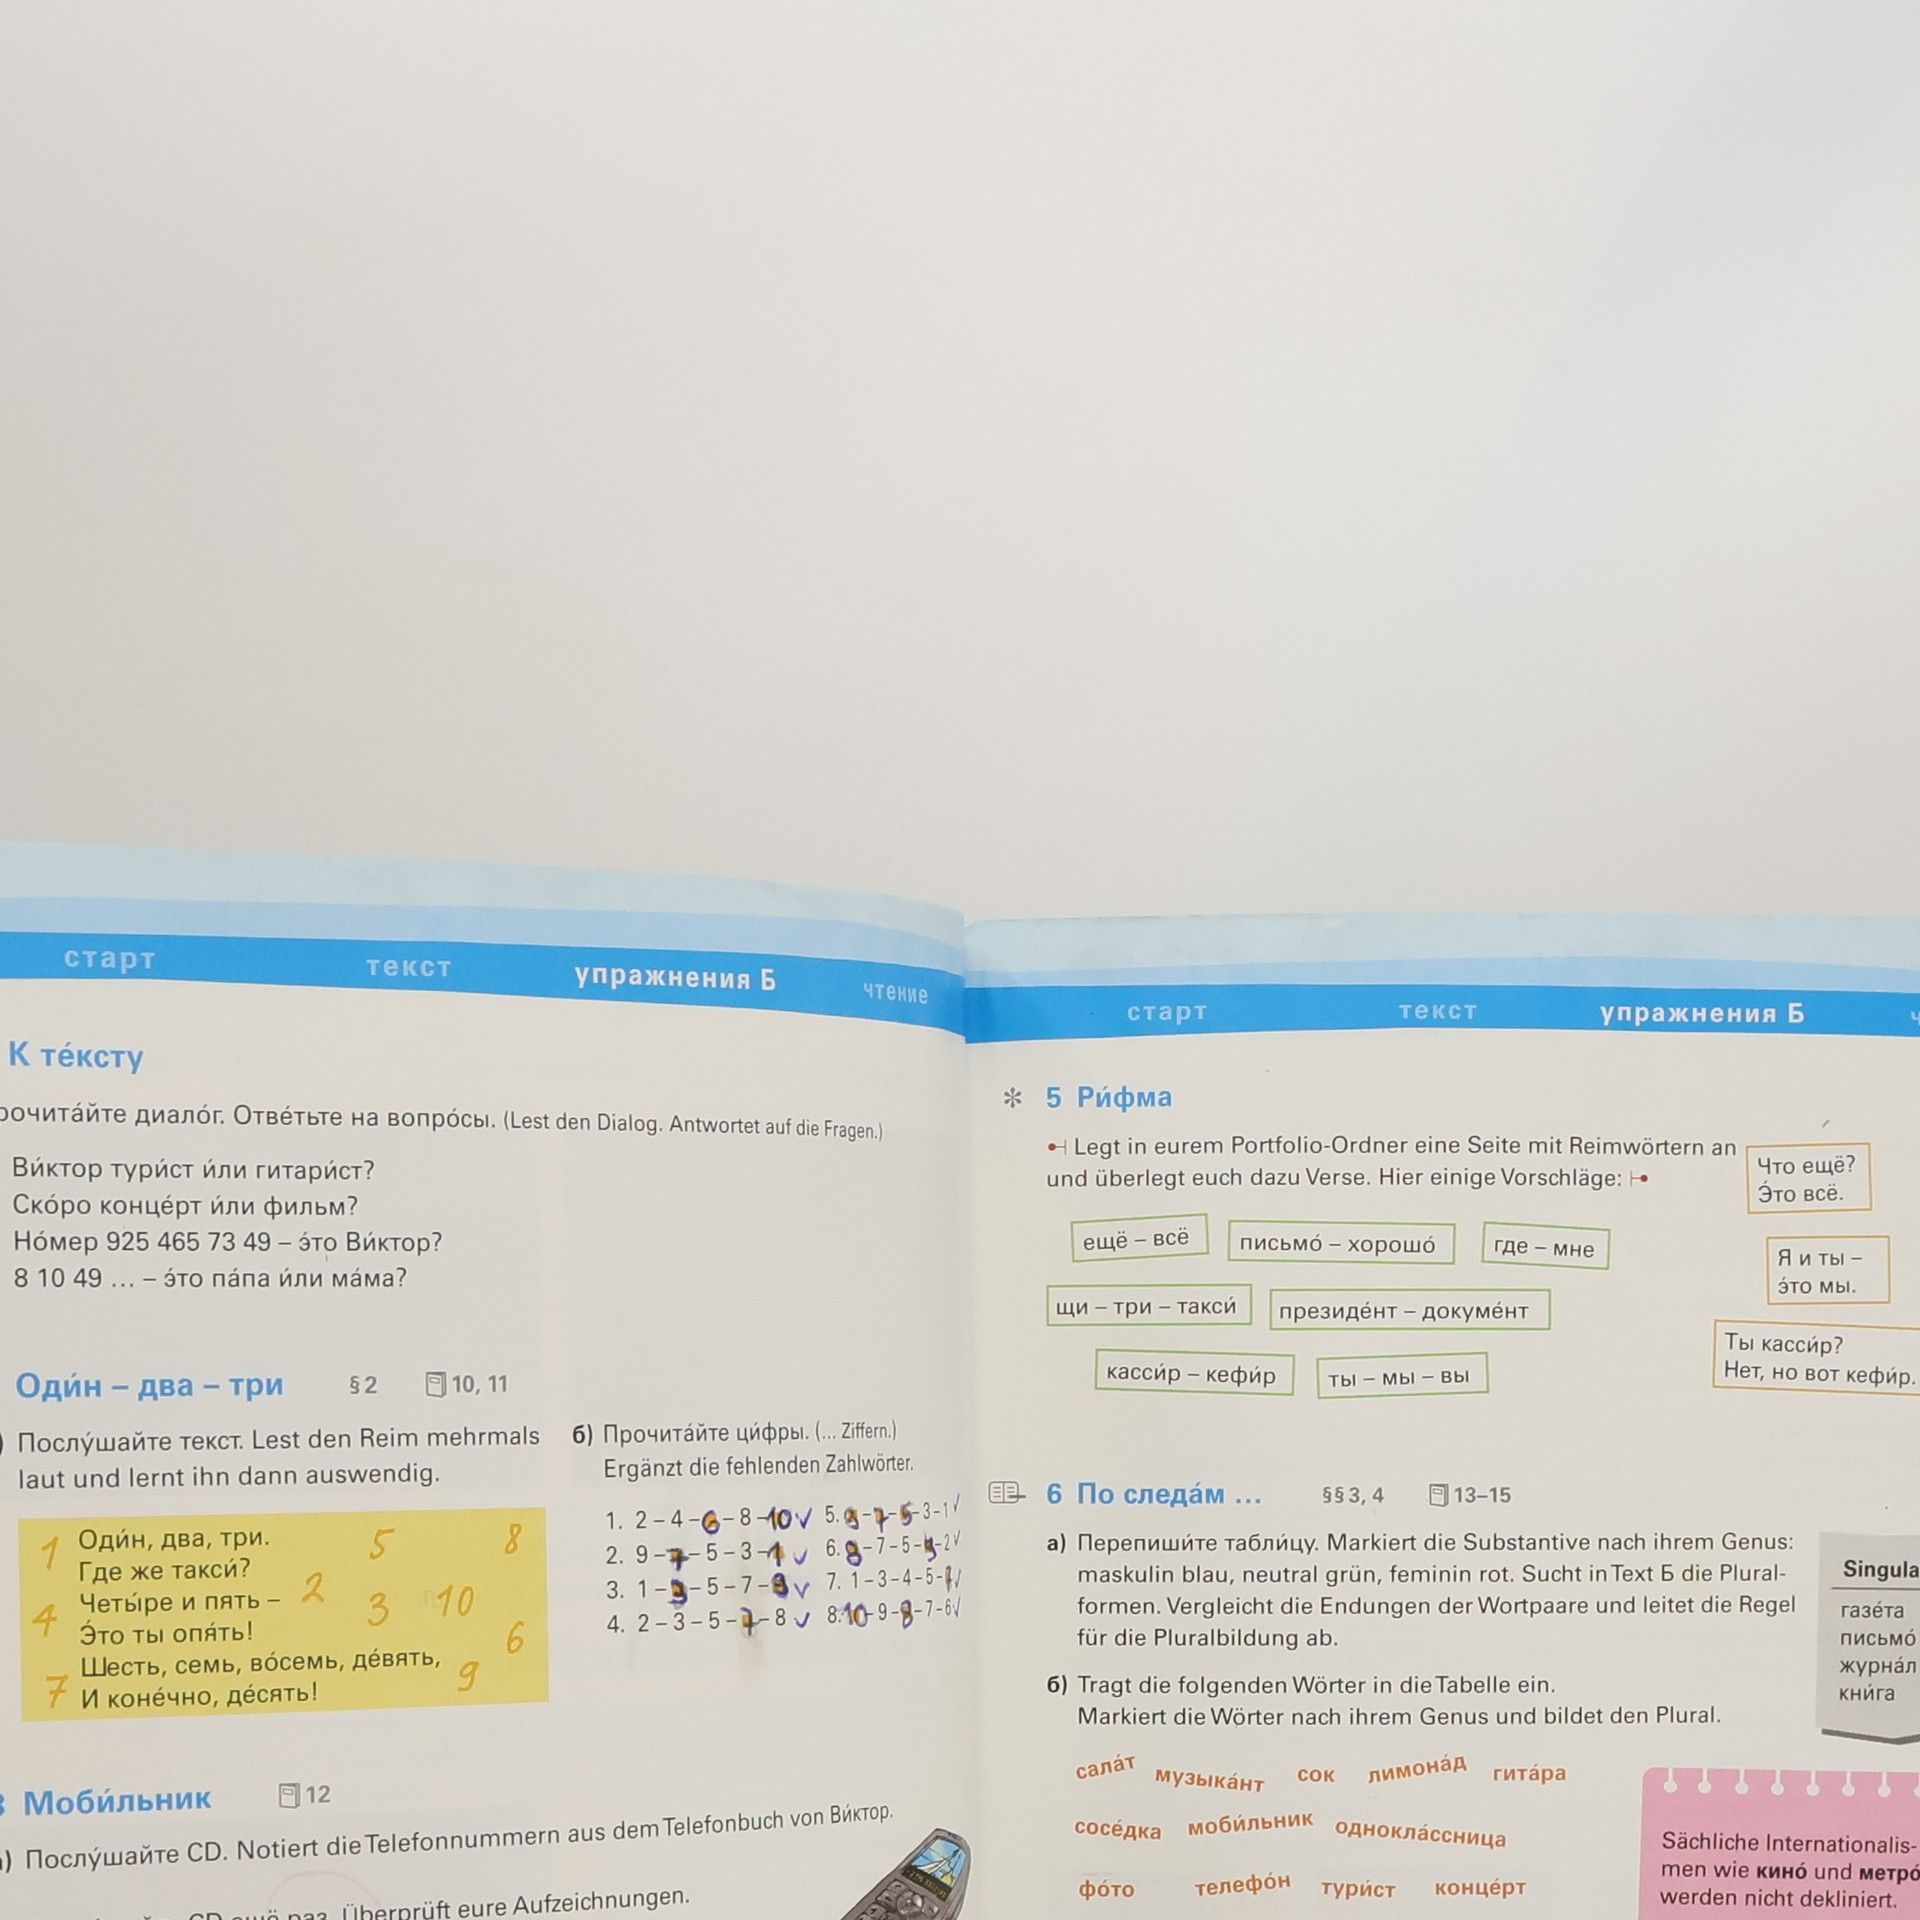 старт текст упражнения Б чтение
К те́ксту
рочита́йте диало́г. Отве́тьте на вопро́сы. (Lest den Dialog. Antwortet auf die Fragen.)
Ви́ктор тури́ст и́ли гитари́ст?
Ско́ро конце́рт и́ли фильм?
Но́мер 925 465 73 49 – э́то Ви́ктор?
8 10 49 ... – э́то па́па и́ли ма́ма?
Оди́н – два – три §2 10, 11
) Послу́шайте текст. Lest den Reim mehrmals
laut und lernt ihn dann auswendig.
Оди́н, два, три.
Где же такси́?
Четы́ре и пять –
Э́то ты опя́ть!
Шесть, семь, во́семь, де́вять,
И коне́чно, де́сять!
1 5 8
2
4 3 10
6
7 9
б) Прочита́йте ци́фры. (... Ziffern.)
Ergänzt die fehlenden Zahlwörter.
1. 2 – 4 – 6 – 8 – 10 ✓
2. 9 – 7 – 5 – 3 – 1 ✓
3. 1 – 3 – 5 – 7 – 9 ✓
4. 2 – 3 – 5 – 7 – 8 ✓
5. 9 – 7 – 5 – 3 – 1 ✓
6. 8 – 7 – 5 – – 2 ✓
7. 1 – 3 – 4 – 5 – ✓
8. 10 – 9 – 8 – 7 – 6 ✓
3 Моби́льник 12
) Послу́шайте CD. Notiert die Telefonnummern aus dem Telefonbuch von Ви́ктор.
CD ещё раз. Überprüft eure Aufzeichnungen.
старт текст упражнения Б ч
* 5 Ри́фма
Legt in eurem Portfolio-Ordner eine Seite mit Reimwörtern an
und überlegt euch dazu Verse. Hier einige Vorschläge:
ещё – всё письмо́ – хорошо́ где – мне
щи – три – такси́ президе́нт – докуме́нт
касси́р – кефи́р ты – мы – вы
Что ещё?
Э́то всё.
Я и ты –
э́то мы.
Ты касси́р?
Нет, но вот кефи́р.
6 По следа́м ... §§3, 4 13–15
а) Перепиши́те табли́цу. Markiert die Substantive nach ihrem Genus:
maskulin blau, neutral grün, feminin rot. Sucht in Text Б die Plural-
formen. Vergleicht die Endungen der Wortpaare und leitet die Regel
für die Pluralbildung ab.
б) Tragt die folgenden Wörter in die Tabelle ein.
Markiert die Wörter nach ihrem Genus und bildet den Plural.
сала́т музыка́нт сок лимона́д гита́ра
сосе́дка моби́льник однокла́ссница
фо́то телефо́н тури́ст конце́рт
Singula
газе́та
письмо́
журна́л
кни́га
Sächliche Internationalis-
men wie кино́ und метро́
werden nicht dekliniert.